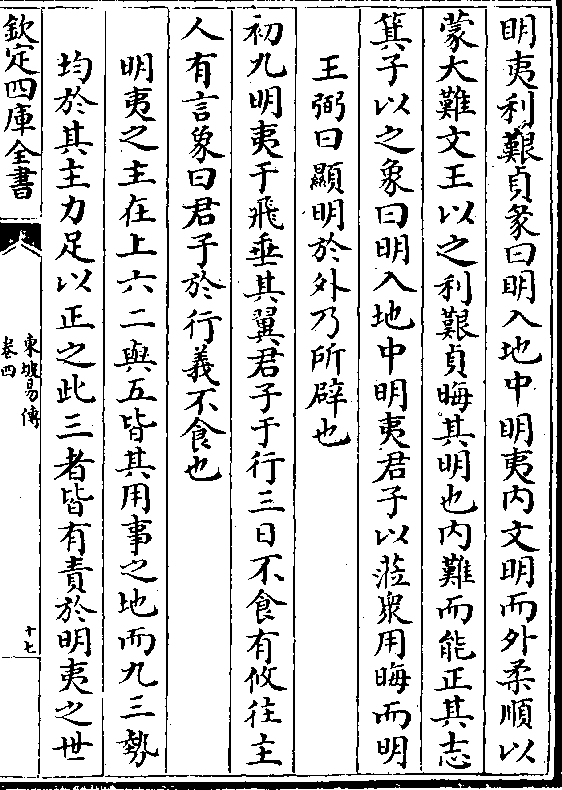 明夷利艱貞彖曰明入地中明夷内文明而外柔順以
蒙大難文王以之利艱貞晦其明也内難而能正其志
箕子以之象曰明入地中明夷君子以蒞衆用晦而明
王弼曰顯明於外乃所辟也
初九明夷于飛垂其翼君子于行三日不食有攸往主
人有言象曰君子於行義不食也
明夷之主在上六二與五皆其用事之地而九三勢
均於其主力足以正之此三者皆有責於明夷之世
欽定四庫全書
東坡易傳
卷四
十七